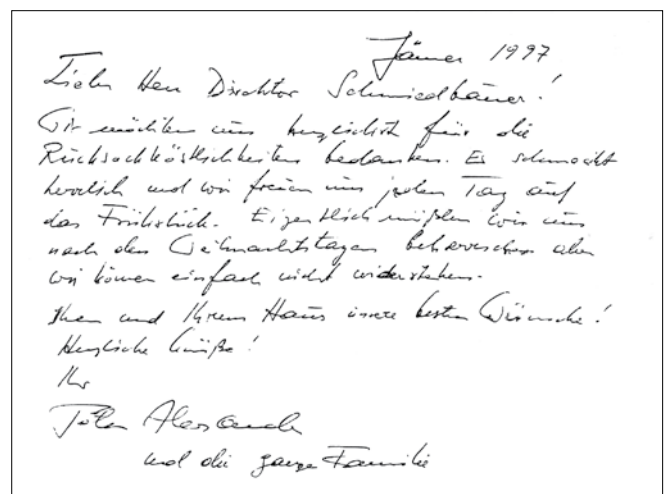 Jänner 1997
Lieber Herr Direktor Schmiedbauer!
Wir möchten uns herzlichst für die
Rucksackköstlichkeiten bedanken. Es schmeckt
herrlich und wir freuen uns jeden Tag auf
das Frühstück. Eigentlich müßten wir uns
nach den Weihnachtstagen beherrschen aber
wir können einfach nicht widerstehen.
Ihnen und Ihrem Haus unsere besten Wünsche!
Herzliche Grüße!
Ihr
Peter Alexander
und die ganze Familie